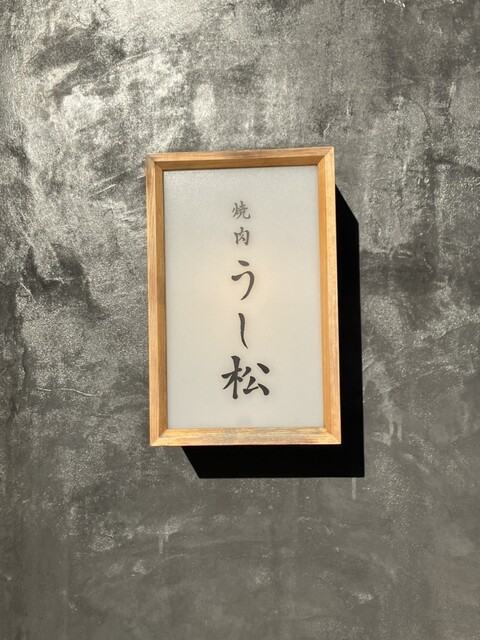 焼肉
うし松